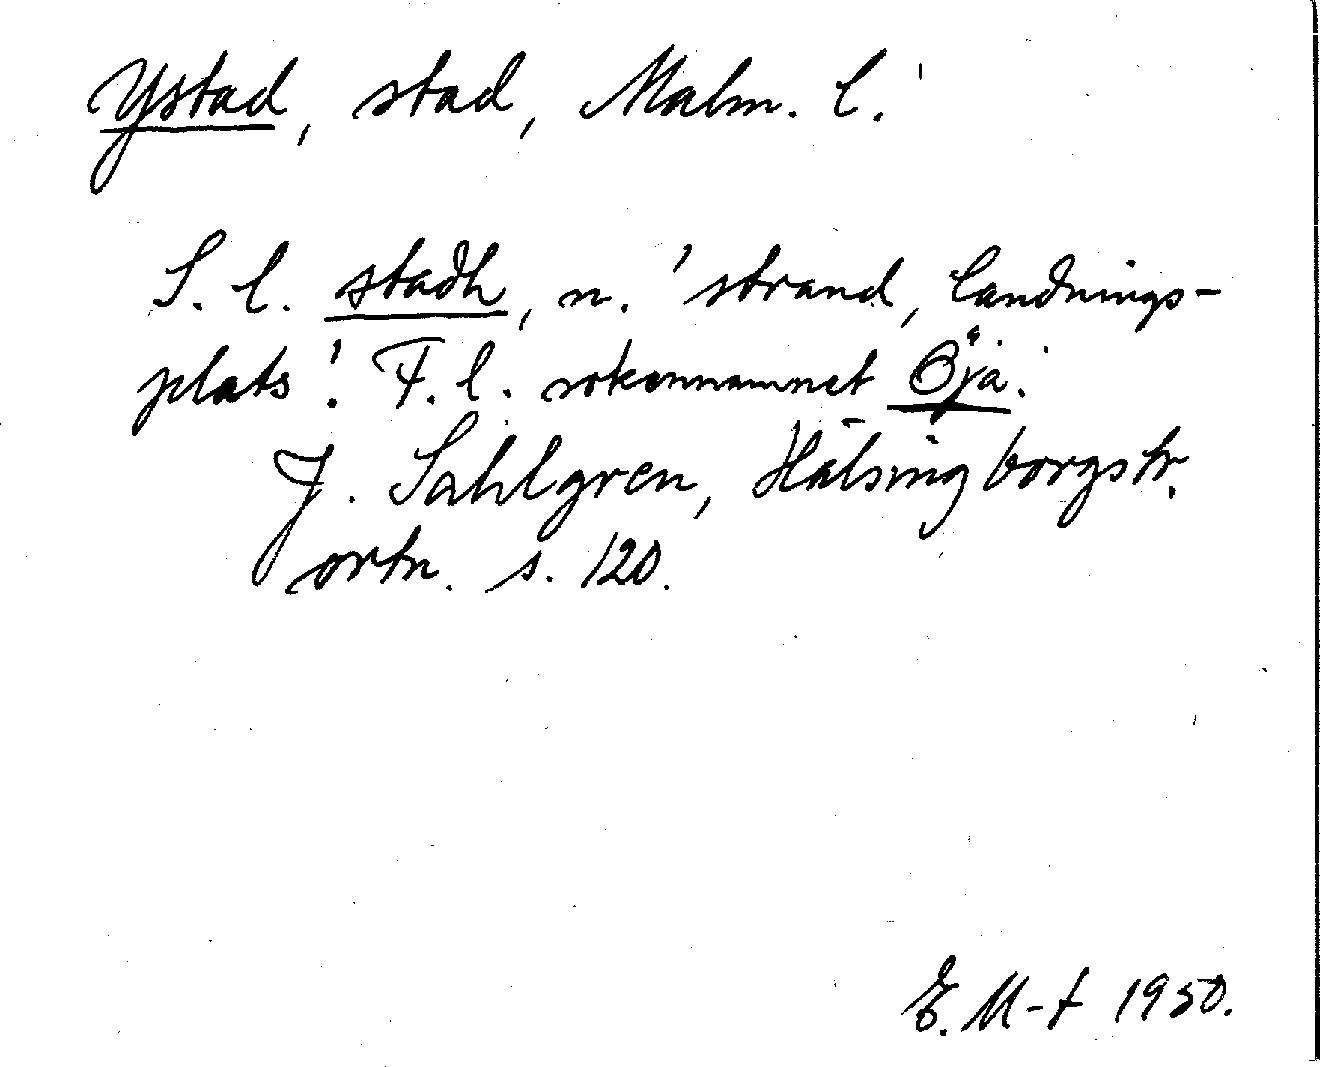 Ystad, stad, Malm. l.
S. l. stadh, n. 'strand, landnings-
plats'. F. l. sokennamnet Öja.
J. Sahlgren, Hälsingborgstr.
ortn. s. 120.
E. M-t 1950.